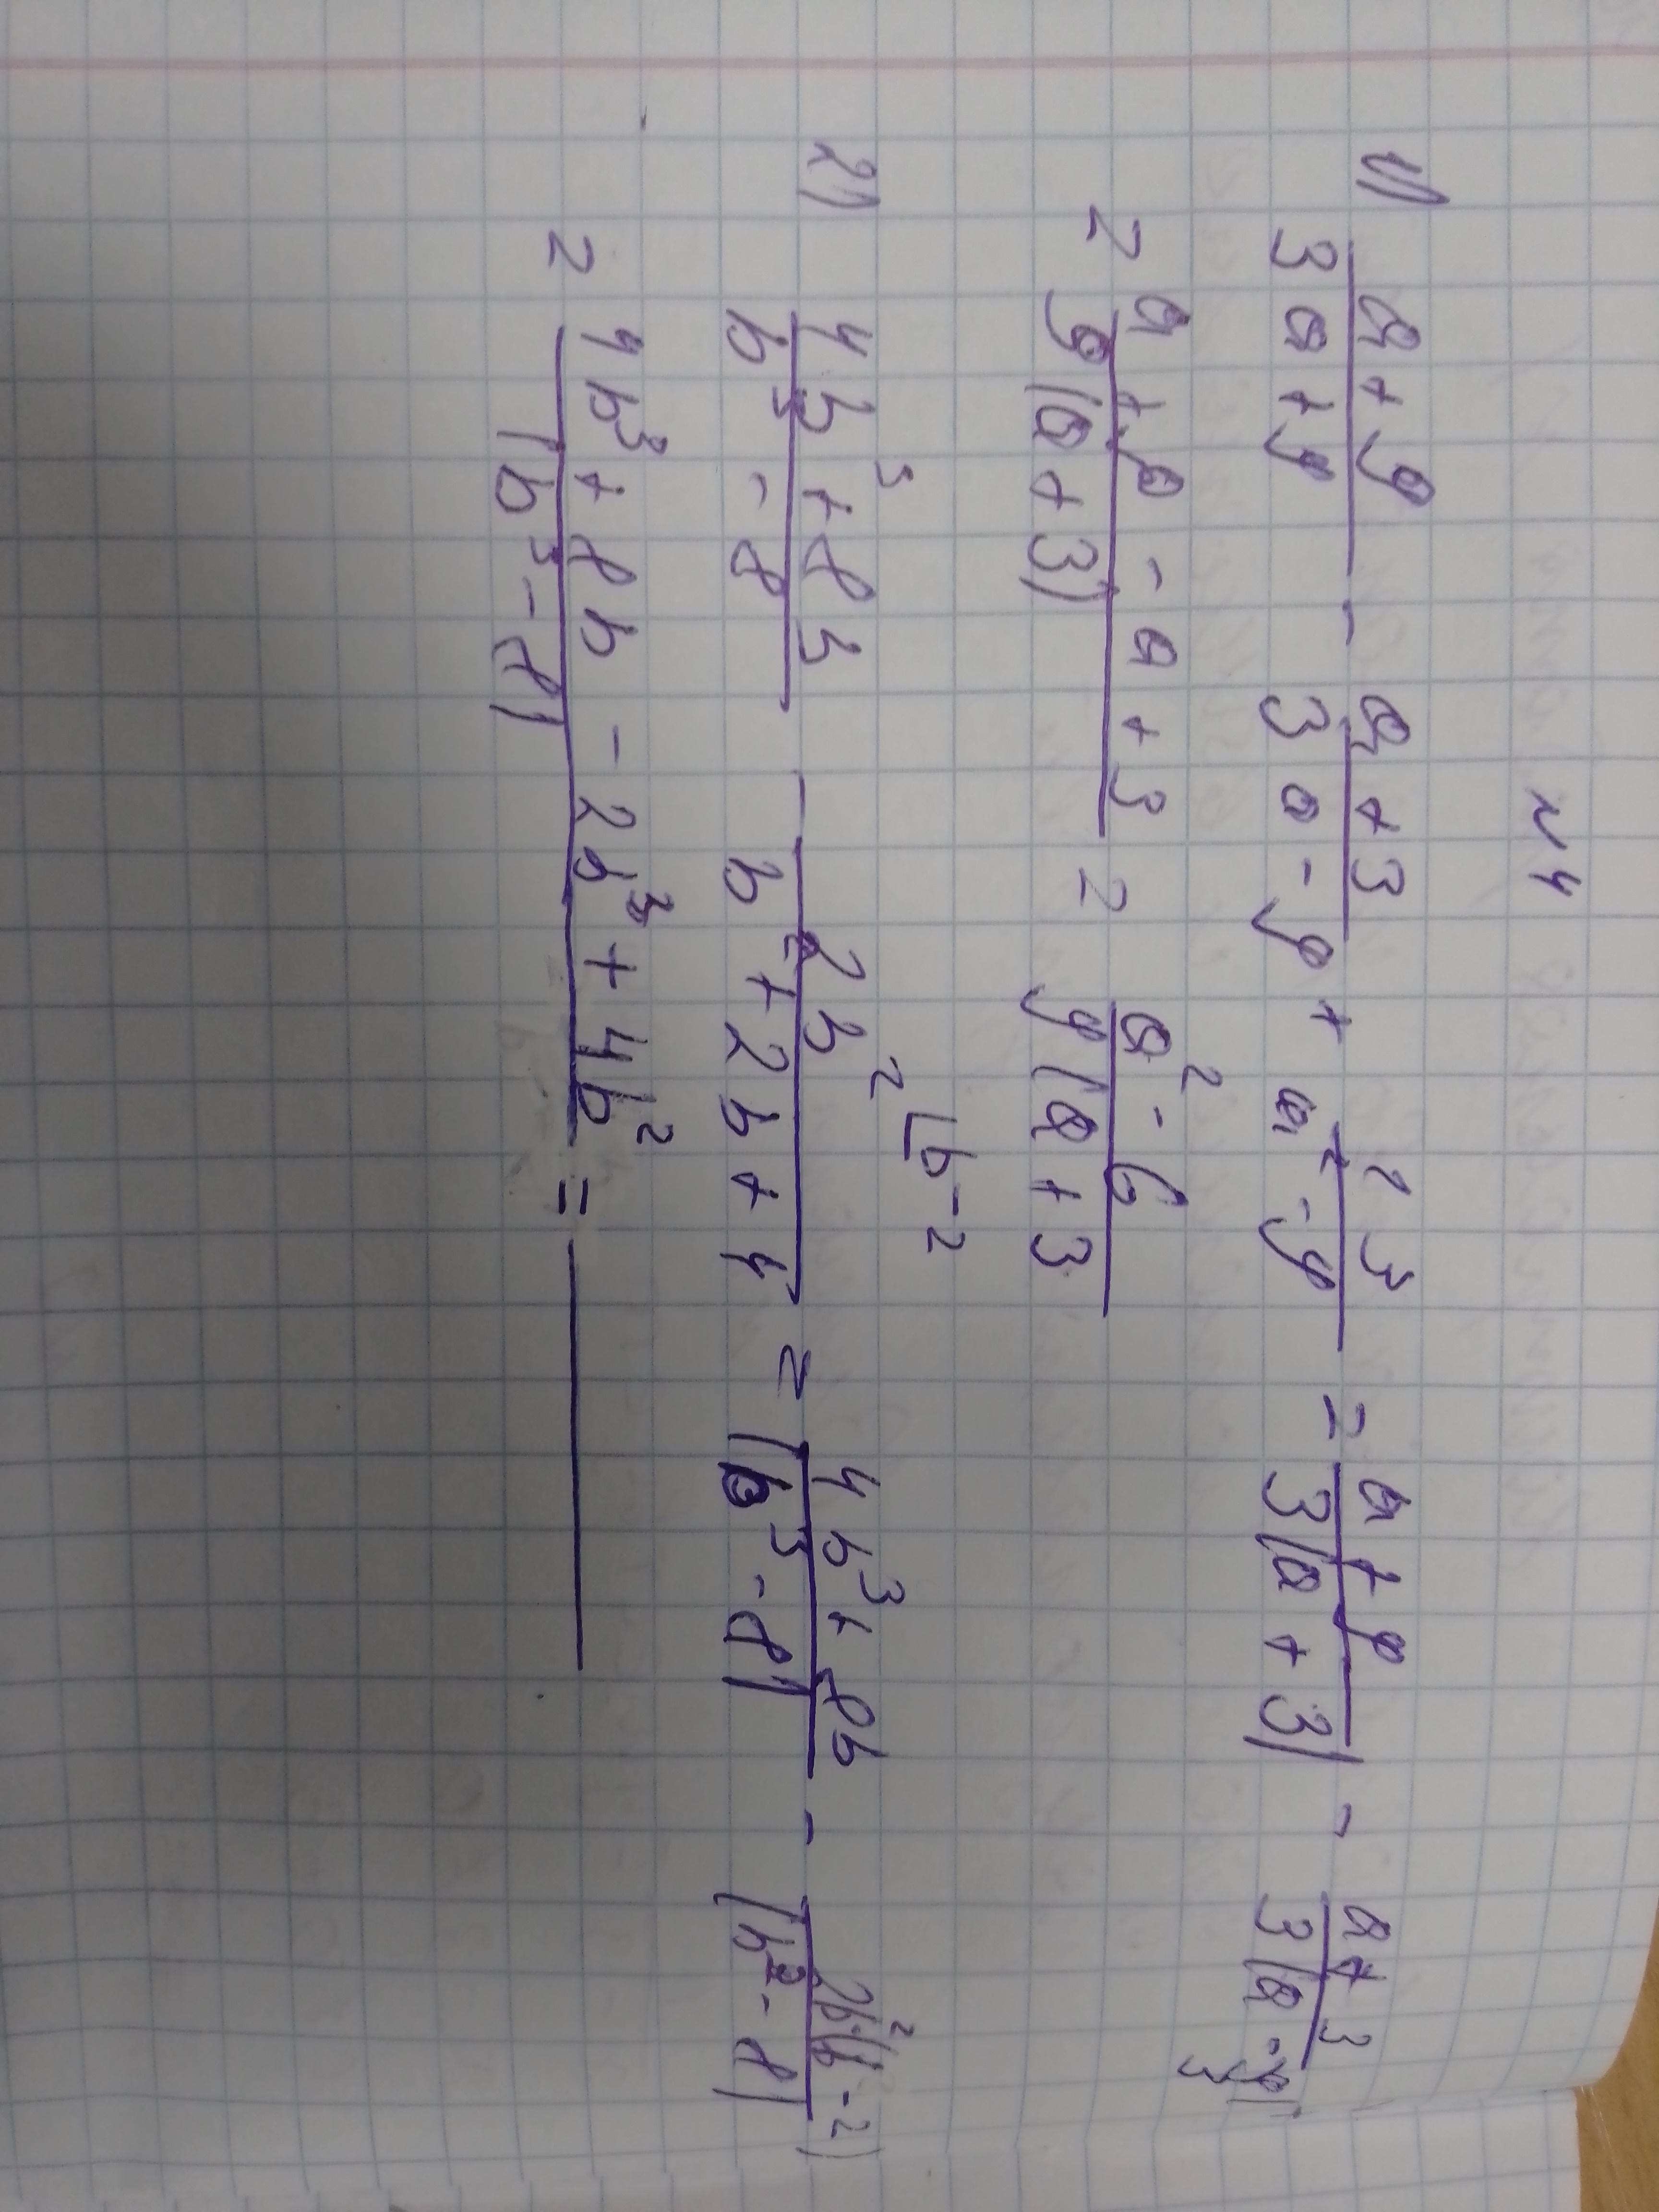 N4
1) (a+9)/(3a+9) - (a+3)/(3a-9) + 13/(a²-9) = (a+9)/(3(a+3)) - (a+3)/(3(a-3))
= (a+9-a+3)/(9(a+3)) = (a²-6)/(9(a+3)
2) (4b³+8b)/(b³-8) - (2b² ⌊b-2)/(b²+2b+4) = (4b³+8b)/((b³-8)) - (2b²(b-2))/((b³-8))
= (4b³+8b-2b³+4b²)/((b³-8)) =